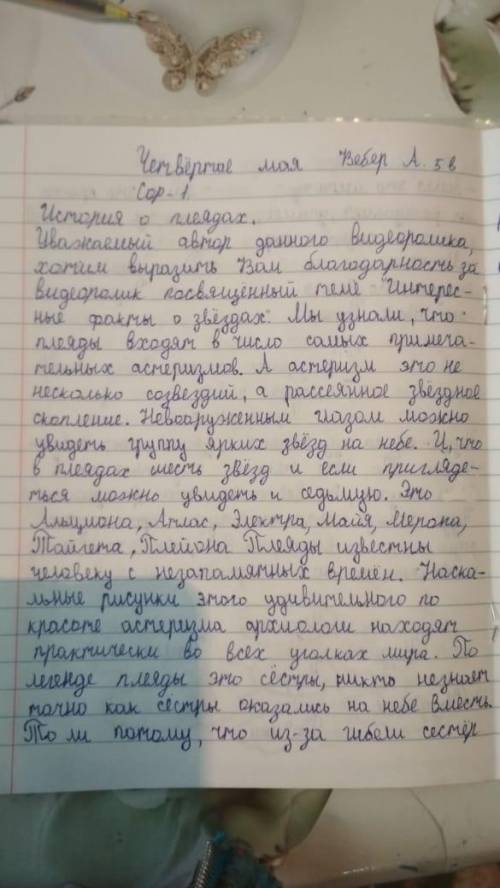 Четвёртое мая Вебер А. 5 в
Сор-1.
История о плеядах.
Уважаемый автор данного видеоролика,
хотим выразить Вам благодарность за
видеоролик посвящённый теме "Интерес-
ные факты о звёздах". Мы узнали, что
плеяды входят в число самых примеча-
тельных астеризмов. А астеризм это не
несколько созвездий, а рассеянное звёздное
скопление. Невооруженным глазом можно
увидеть группу ярких звёзд на небе. И, что
в плеядах шесть звёзд и если приглядe-
ться можно увидеть и седьмую. Это
Альциона, Атлас, Электра, Майя, Мерона,
Тайгета, Плейона Плеяды известны
человеку с незапамятных времён. Наска-
льные рисунки этого удивительного по
красоте астеризма архиологи находят
практически во всех уголках мира. По
легенде плеяды это сёстры, никто незнает
точно как сёстры оказались на небе вместе.
То ли потому, что из-за гибели сестёр